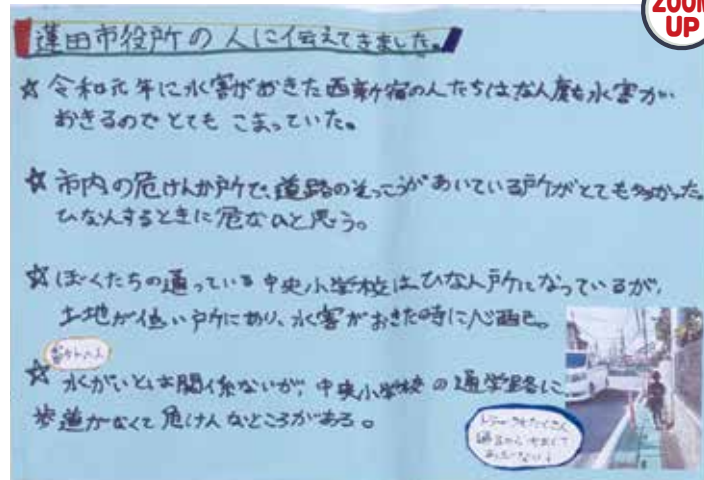 ZOOM
UP
蓮田市役所の人に伝えてきました。
☆令和元年に水害がおきた西新宿の人たちはなん度も水害が
おきるのでとてもこまっていた。
☆市内の危けんか所で、道路のそっこうがあいている所がとても多かった。
ひなんするときに危ないと思う。
☆ぼくたちの通っている中央小学校はひなん所になっているが、
土地が低い所にあり、水害がおきた時に心配だ。
番外へん
☆水がいとは関係ないが、中央小学校の通学路に
歩道がなくて危けんなところがある。